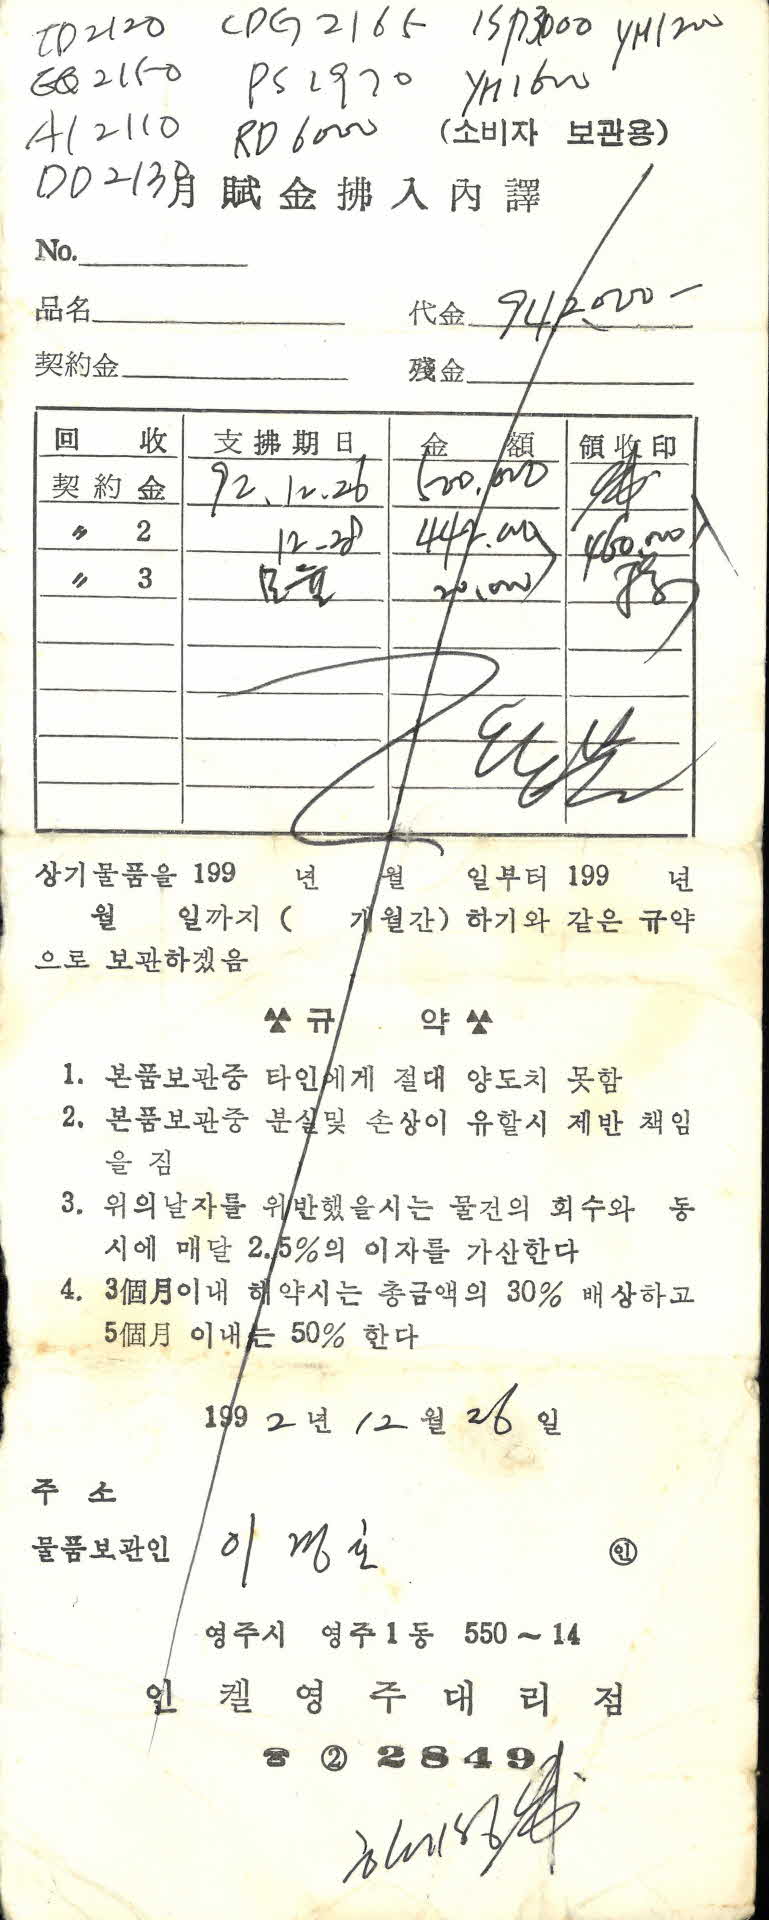 TD2120 CDG2165 ISP3000 YH1200
GQ2150 PS1970 YH1600
AI2110 RD6000 (소비자 보관용)
DD2130 月賦金拂入內譯
No.
品名 代金 942,000-
契約金 殘金
回收 支拂期日 金額 領收印
契約金 92.12.26 500,000
〃 2 12-28 442.000 460,000
〃 3 20,000
상기물품을 199 년 월 일부터 199 년
월 일까지 ( 개월간) 하기와 같은 규약
으로 보관하겠음
규 약
1. 본품보관중 타인에게 절대 양도치 못함
2. 본품보관중 분실및 손상이 유할시 제반 책임
을 짐
3. 위의날자를 위반했을시는 물건의 회수와 동
시에 매달 2.5%의 이자를 가산한다
4. 3個月이내 해약시는 총금액의 30% 배상하고
5個月 이내는 50% 한다
1992년 12월 26일
주 소
물품보관인 이경호 ㊞
영주시 영주1동 550~14
인켈영주대리점
☎ ② 2849